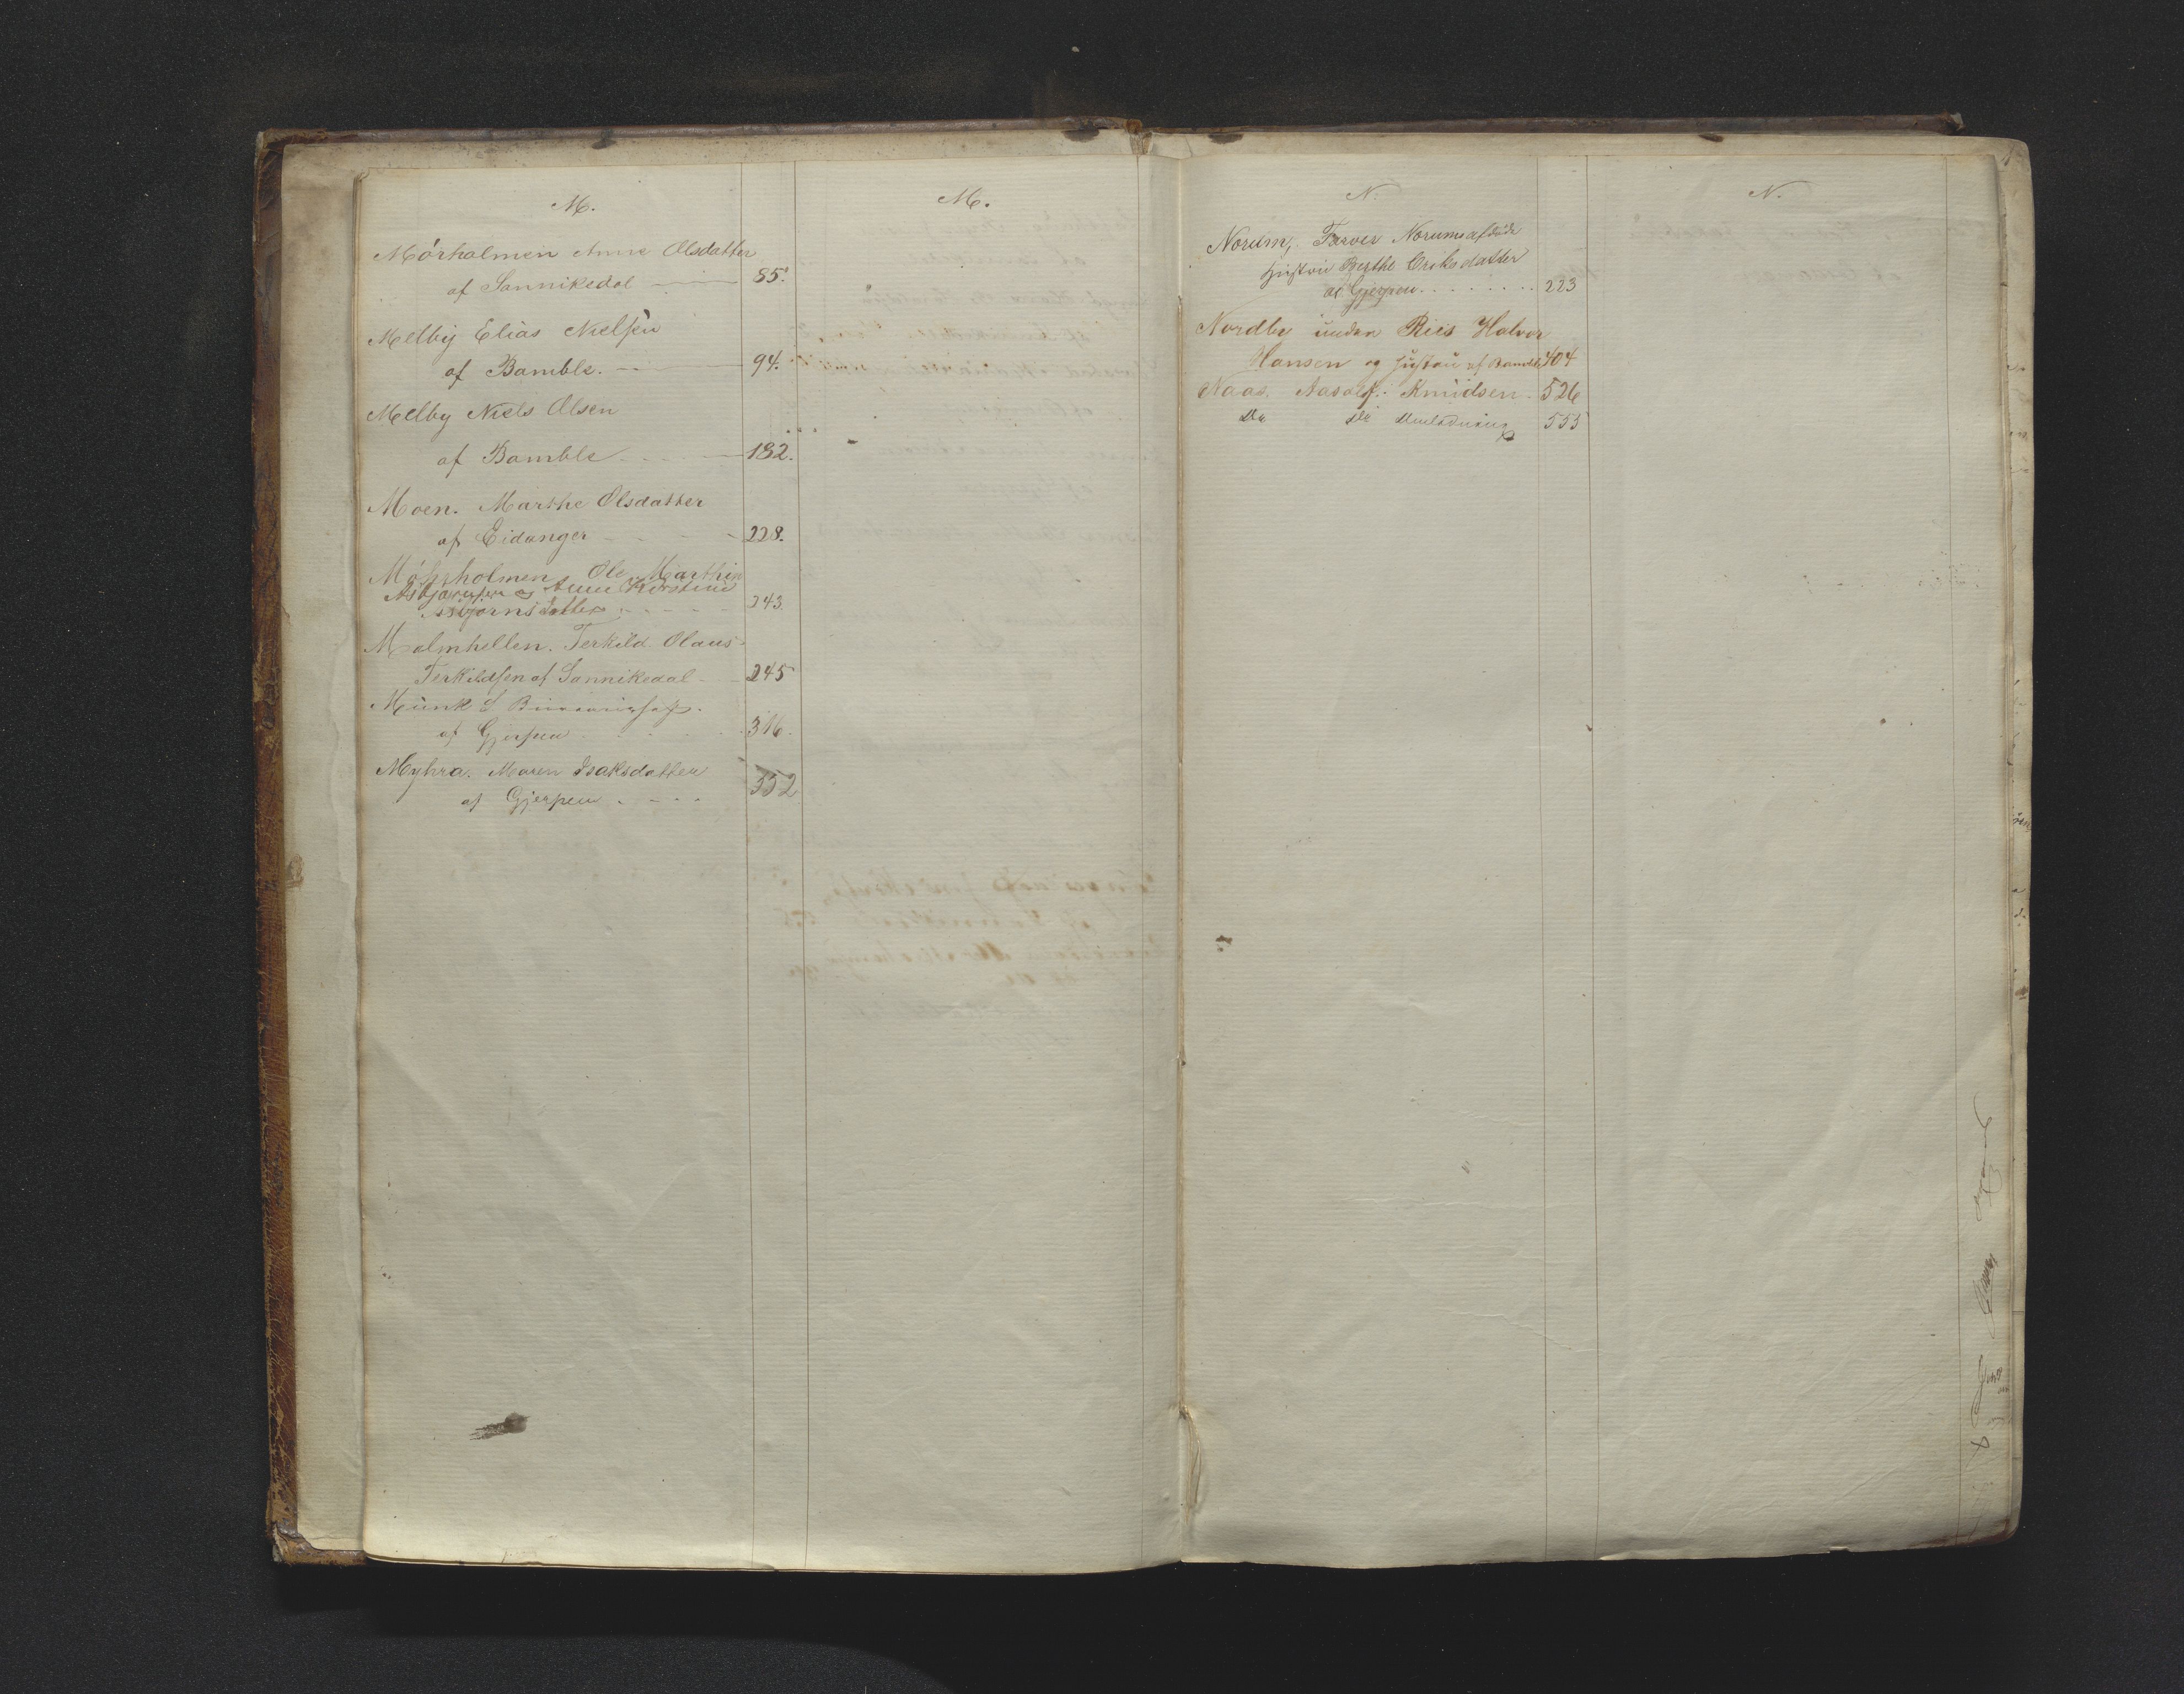 M.
Mörholmen Anne Olsdatter
af Sannikedal 85.
Melby Elias Nielsen
af Bamble. 94.
Melby Niels Olsen
af Bamble 182.
Moen. Marthe Olsdatter
af Eidanger 228.
Mörholmen Ole Marthin
Asbjørnsen og Anne Kirstine
Asbjørnsdatter 243.
Malmhellen. Terkild Olaus
Terkildsen af Sannikedal 245
Munk S
af Gjerpen 316.
Myhra. Maren Isaksdatter
af Gjerpen 352
M.
N.
Norum, Farver Norums afdøde
Hustru Berthe
af Gjerpen 223
Nordby under Riis Halvor
Hansen og Hustru af Bamble 404
Naas. Aasolf Knudsen 526
Do Do 553
N.